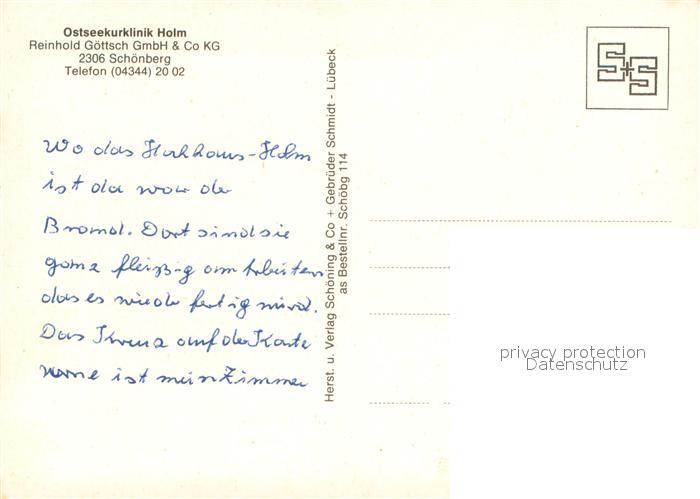 Ostseekurklinik Holm
Reinhold Göttsch GmbH & Co KG
2306 Schönberg
Telefon (04344) 20 02
S+S
Wo das Hochhaus-Holm
ist da war de
Brand. Dort sind sie
ganz fleißig am Arbeiten
das es wiede fertig wird.
Das Kreuz auf der Karte
vorne ist mein Zimmer
Herst. u. Verlag Schöning & Co + Gebrüder Schmidt - Lübeck
as Bestellnr. Schöbg 114
privacy protection
Datenschutz